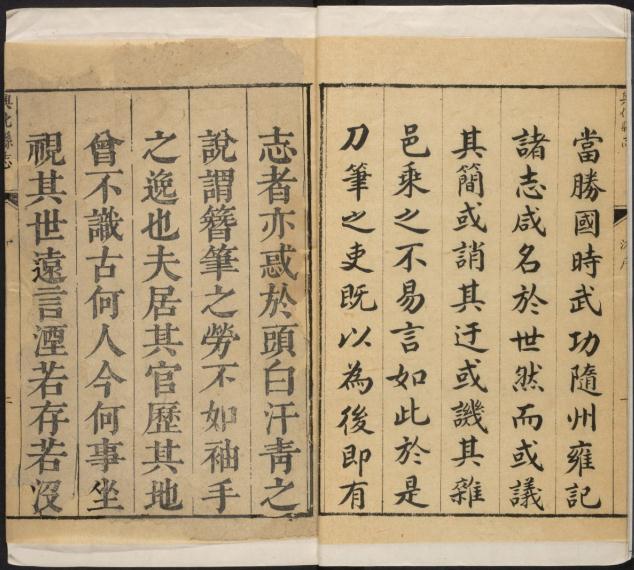 當勝國時武功隨州雍記
諸志咸名於世然而或議
其簡或誚其迂或譏其雜
邑乘之不易言如此於是
刀筆之吏既以為後即有
志者亦惑於頭白汗青之
說謂簪筆之勞不如袖手
之逸也夫居其官歷其地
曾不識古何人今何事坐
視其世遠言湮若存若沒
興化縣志